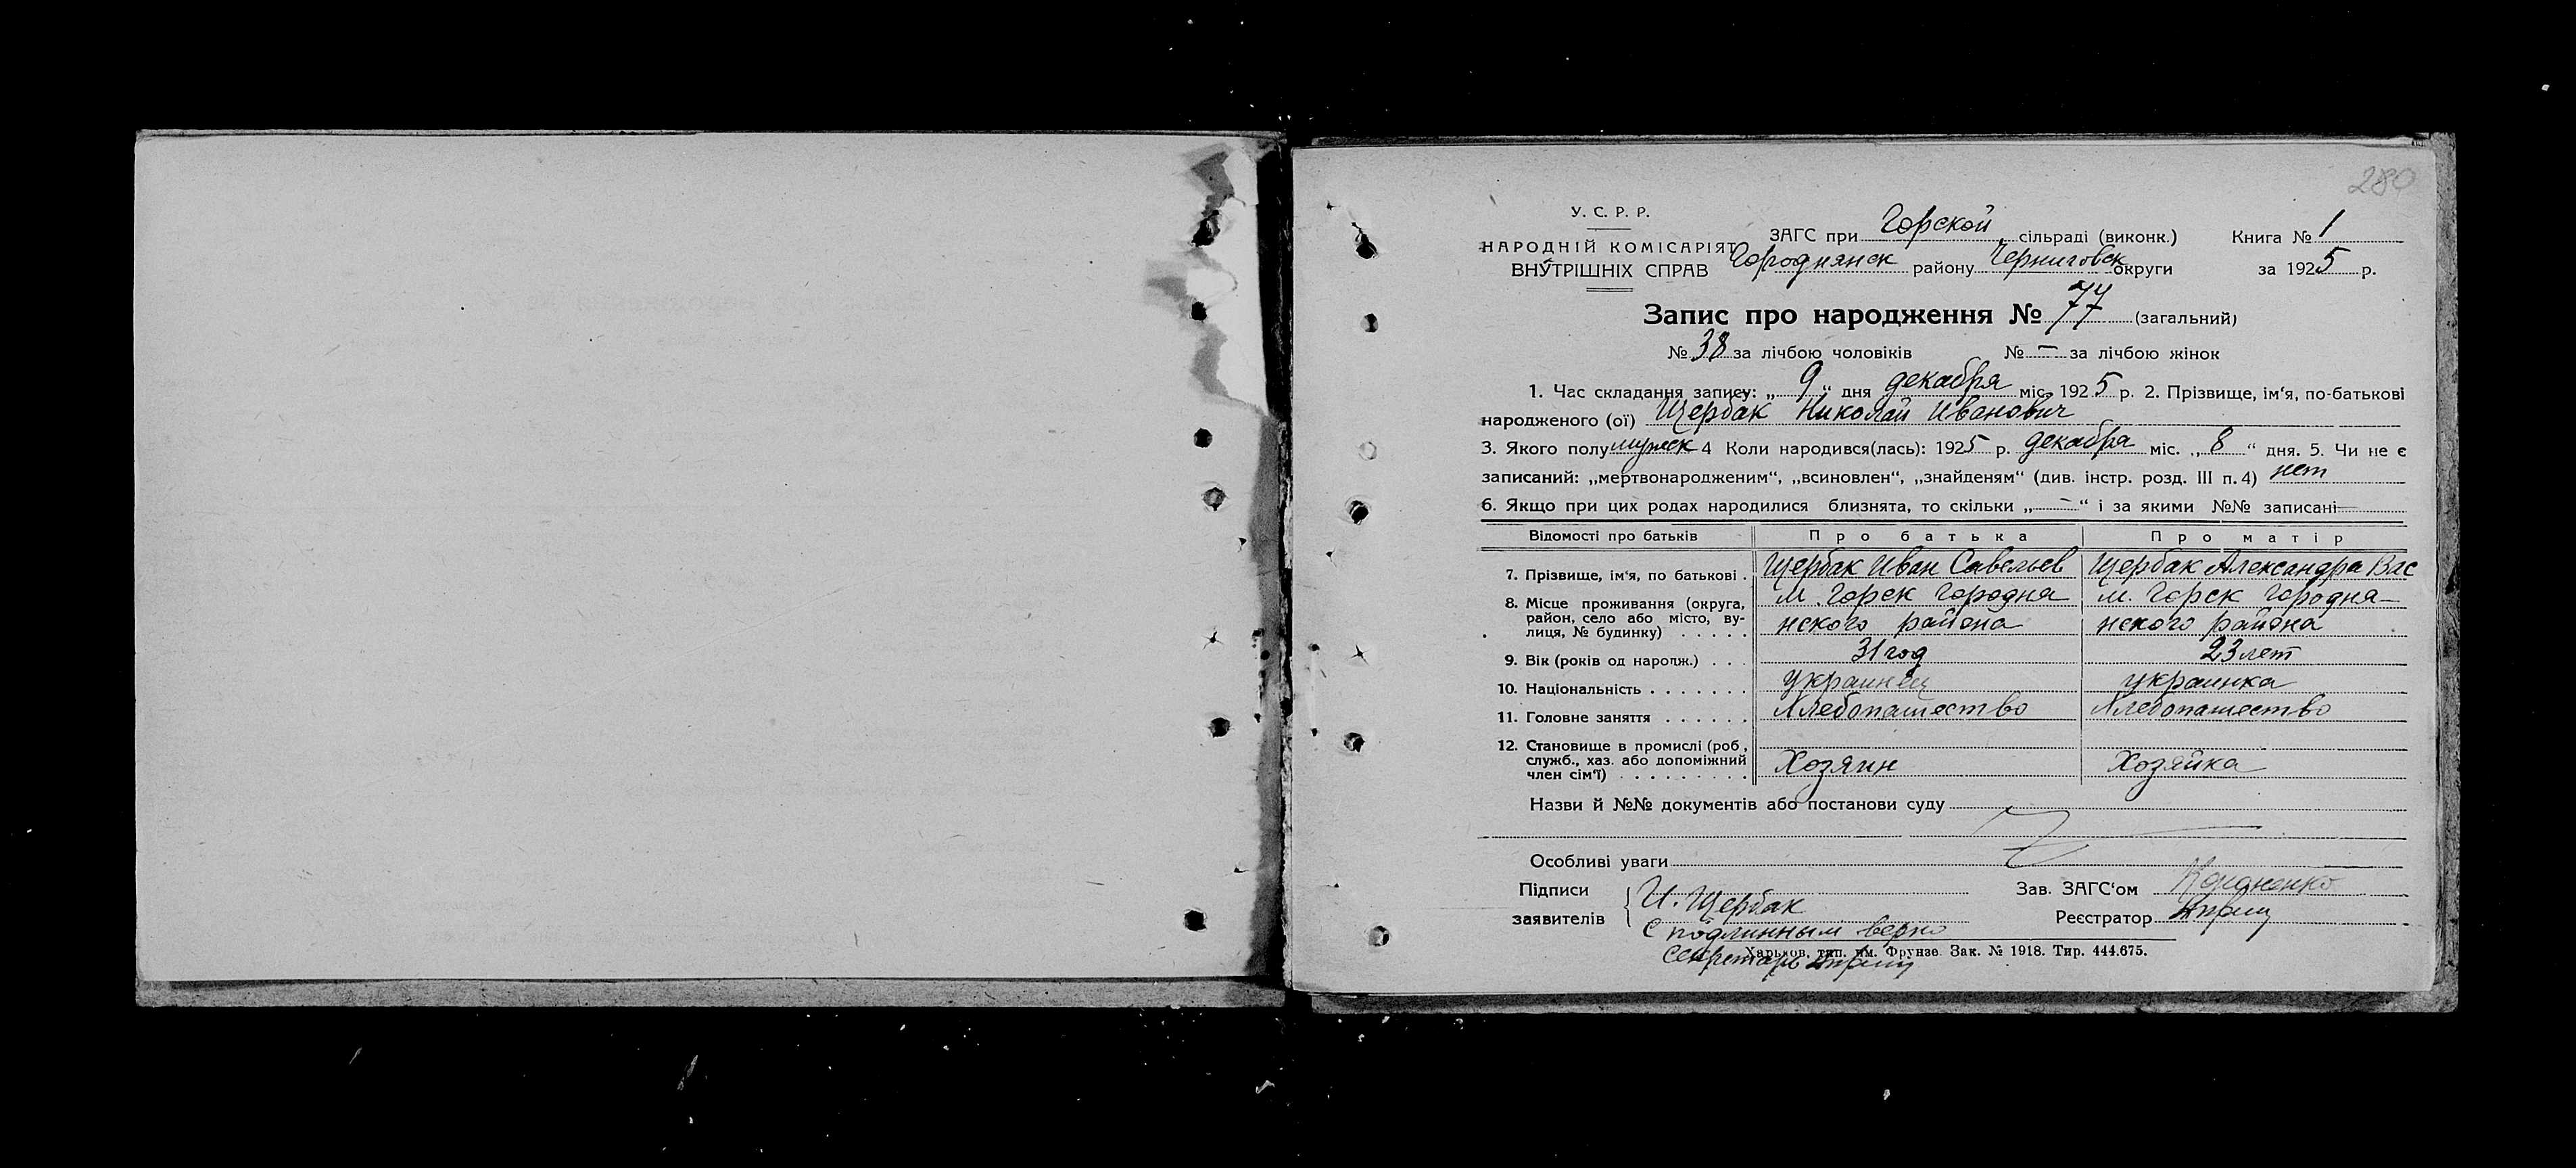 280
У. С. Р. Р.
НАРОДНІЙ КОМІСАРІЯТ
ВНУТРІШНІХ СПРАВ
ЗАГС при Горской сільраді (виконк.) Книга № 1
Городнянск району Черниговск округи за 1925 р.
Запис про народження № 77 (загальний)
№ 38 за лічбою чоловіків № — за лічбою жінок
1. Час складання запису: „ 9 “ дня декабря міс. 1925 р. 2. Прізвище, ім‘я, по-батькові
народженого (ої) Щербак Николай Иванович
3. Якого полу мужск 4 Коли народився(лась): 1925 р. декабря міс. „ 8 “ дня. 5. Чи не є
записаний: „мертвонародженим“, „всиновлен“, „знайденям“ (див. інстр. розд. III п. 4) нет
6. Якщо при цих родах народилися близнята, то скільки „ — “ і за якими №№ записані —
Відомості про батьків Про батька Про матір
7. Прізвище, ім‘я, по батькові . Щербак Иван Савельев Щербак Александра Вас
8. Місце проживання (округа, м. Горск Городня м. Горск Городня-
район, село або місто, ву- нского района нского района
лиця, № будинку) . . . . .
9. Вік (років од народж.) . . . 31 год 23 лет
10. Національність . . . . . . . украинец украинка
11. Головне заняття . . . . . . Хлебопашество Хлебопашество
12. Становище в промислі (роб ,
служб., хаз. або допоміжний Хозяин Хозяйка
член сім‘ї) . . . . . . . . .
Назви й №№ документів або постанови суду
Особливі уваги
Підписи
заявителів
И. Щербак
Зав. ЗАГС‘ом
Реєстратор
С подлинным верно
Секретарь
Харьков, тип. им. Фрунзе Зак. № 1918. Тир. 444.675.